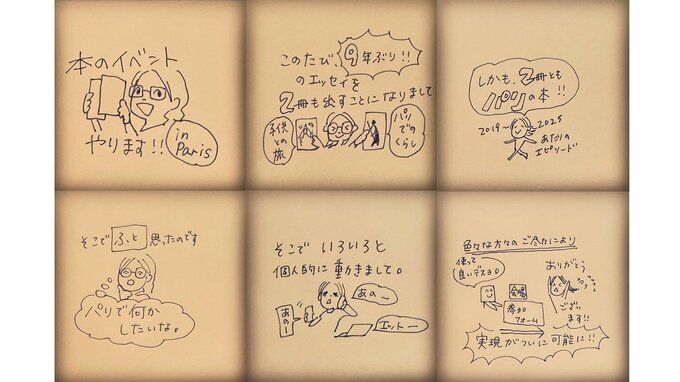 本のイベント
やります!!
in
Paris
このたび、9年ぶり!!
のエッセイを
2冊も出すことになりまして
子供
との
旅
パリ
での
くらし
しかも、2冊とも
パリの本!!
2019〜
2025
あたりの
エピソード
そこで ふと 思ったのです
パリで何か
したいな。
そこで いろいろと
個人的に 動きまして。
あのー
あの〜
エットー
色々な方々のご尽力により
使って
良いデスヨ。
参加
フォーム
ありがとう
ござい
ます!!
実現がついに可能に!!